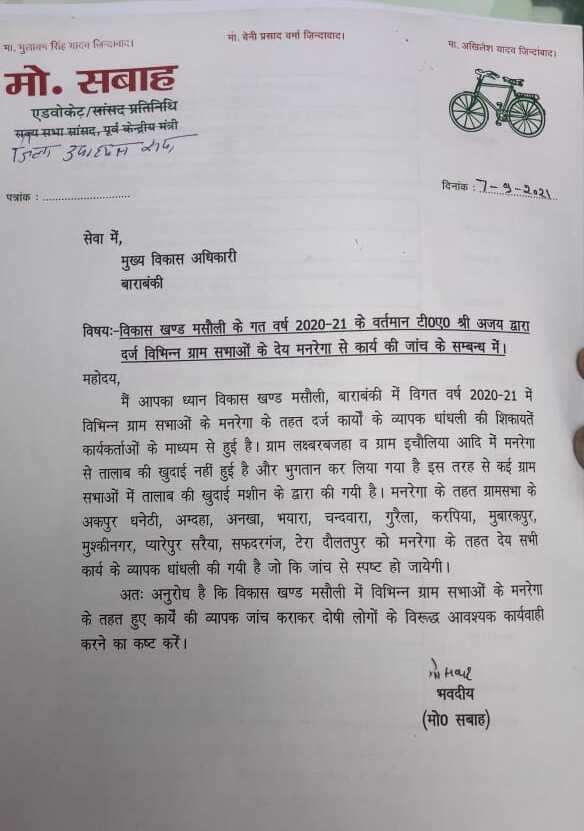 मा. मुलायम सिंह यादव ज़िन्दाबाद।
मा. बेनी प्रसाद वर्मा ज़िन्दाबाद।
मा. अखिलेश यादव ज़िन्दाबाद।
मो. सबाह
एडवोकेट/सांसद प्रतिनिधि
राज्य सभा सांसद, पूर्व केन्द्रीय मंत्री
जिला उपाध्यक्ष सपा,
पत्रांक : ............................
दिनांक : 7-9-2021
सेवा में,
मुख्य विकास अधिकारी
बाराबंकी
विषयः-विकास खण्ड मसौली के गत वर्ष 2020-21 के वर्तमान टी0ए0 श्री अजय द्वारा
दर्ज विभिन्न ग्राम सभाओं के देय मनरेगा से कार्य की जांच के सम्बन्ध में।
महोदय,
मैं आपका ध्यान विकास खण्ड मसौली, बाराबंकी में विगत वर्ष 2020-21 में
विभिन्न ग्राम सभाओं के मनरेगा के तहत दर्ज कार्यों के व्यापक धांधली की शिकायतें
कार्यकर्ताओं के माध्यम से हुई है। ग्राम लक्ष्बरबजहा व ग्राम इचौलिया आदि में मनरेगा
से तालाब की खुदाई नहीं हुई है और भुगतान कर लिया गया है इस तरह से कई ग्राम
सभाओं में तालाब की खुदाई मशीन के द्वारा की गयी है। मनरेगा के तहत ग्रामसभा के
अकपुर धनेठी, अम्दहा, अनखा, भयारा, चन्दवारा, गुरैला, करपिया, मुबारकपुर,
मुश्कीनगर, प्यारेपुर सरैया, सफदरगंज, टेरा दौलतपुर को मनरेगा के तहत देय सभी
कार्य के व्यापक धांधली की गयी है जो कि जांच से स्पष्ट हो जायेगी।
अतः अनुरोध है कि विकास खण्ड मसौली में विभिन्न ग्राम सभाओं के मनरेगा
के तहत हुए कार्ये की व्यापक जांच कराकर दोषी लोगों के विरूद्ध आवश्यक कार्यवाही
करने का कष्ट करें।
भवदीय
(मो0 सबाह)